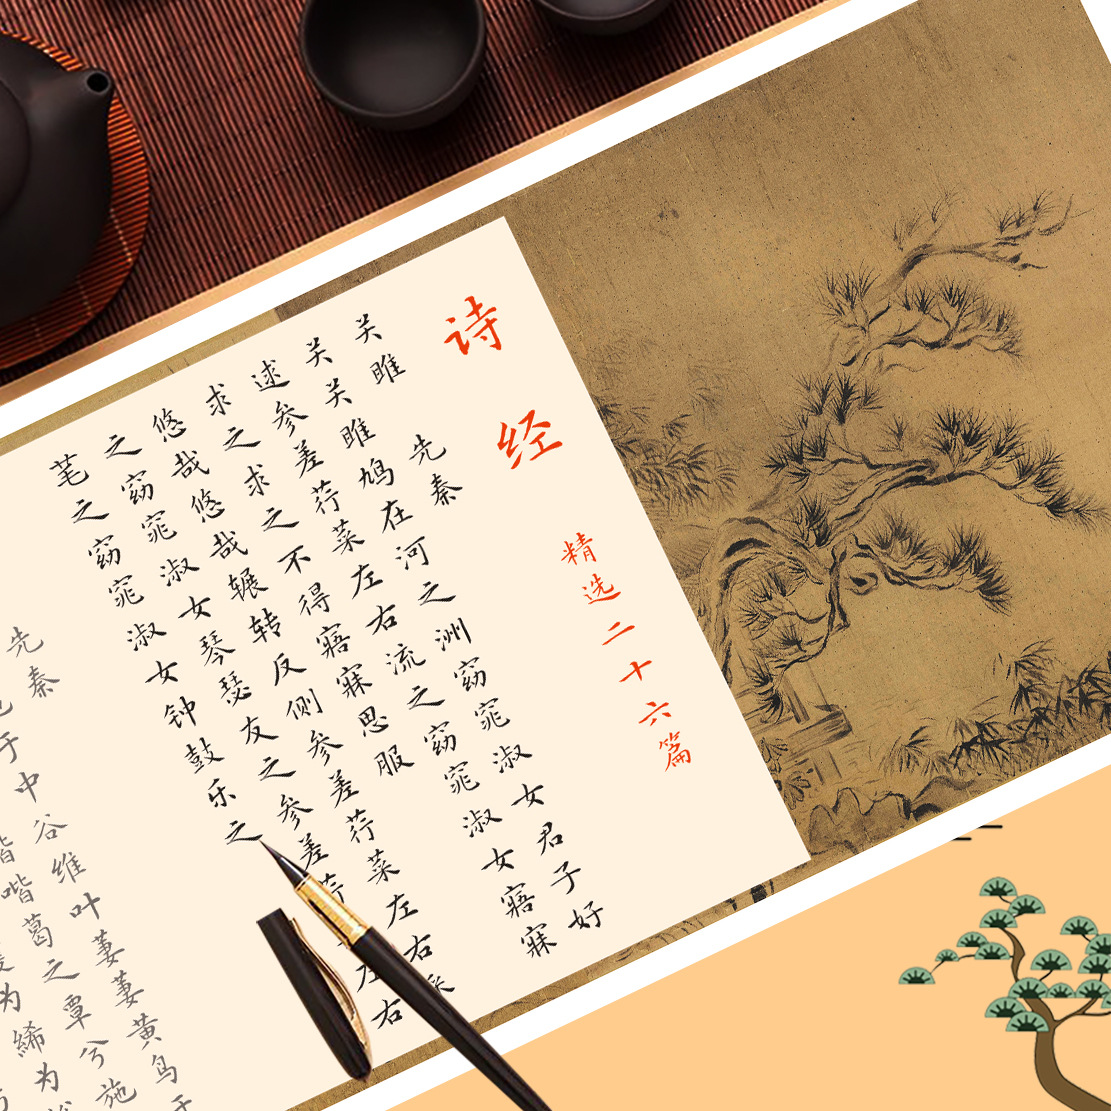 诗经
精选二十六篇
关雎 先秦
关关雎鸠在河之洲窈窕淑女君子好
逑参差荇菜左右流之窈窕淑女寤寐
求之求之不得寤寐思服
悠哉悠哉辗转反侧参差荇菜左右采
之窈窕淑女琴瑟友之参差荇左右
芼之窈窕淑女钟鼓乐之
先秦
于中谷维叶萋萋黄鸟于
喈喈葛之覃兮施
为絺为